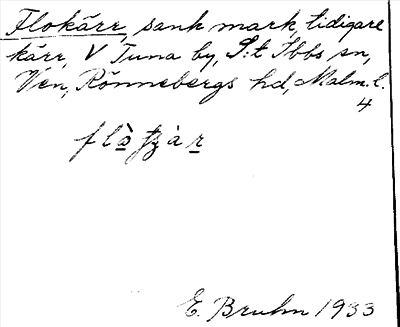 Flokärr, sank mark, tidigare
kärr, V Tuna by, S:t Ibbs sn,
Ven, Rönnebergs hd, Malm. l.
4
E. Bruhn 1933